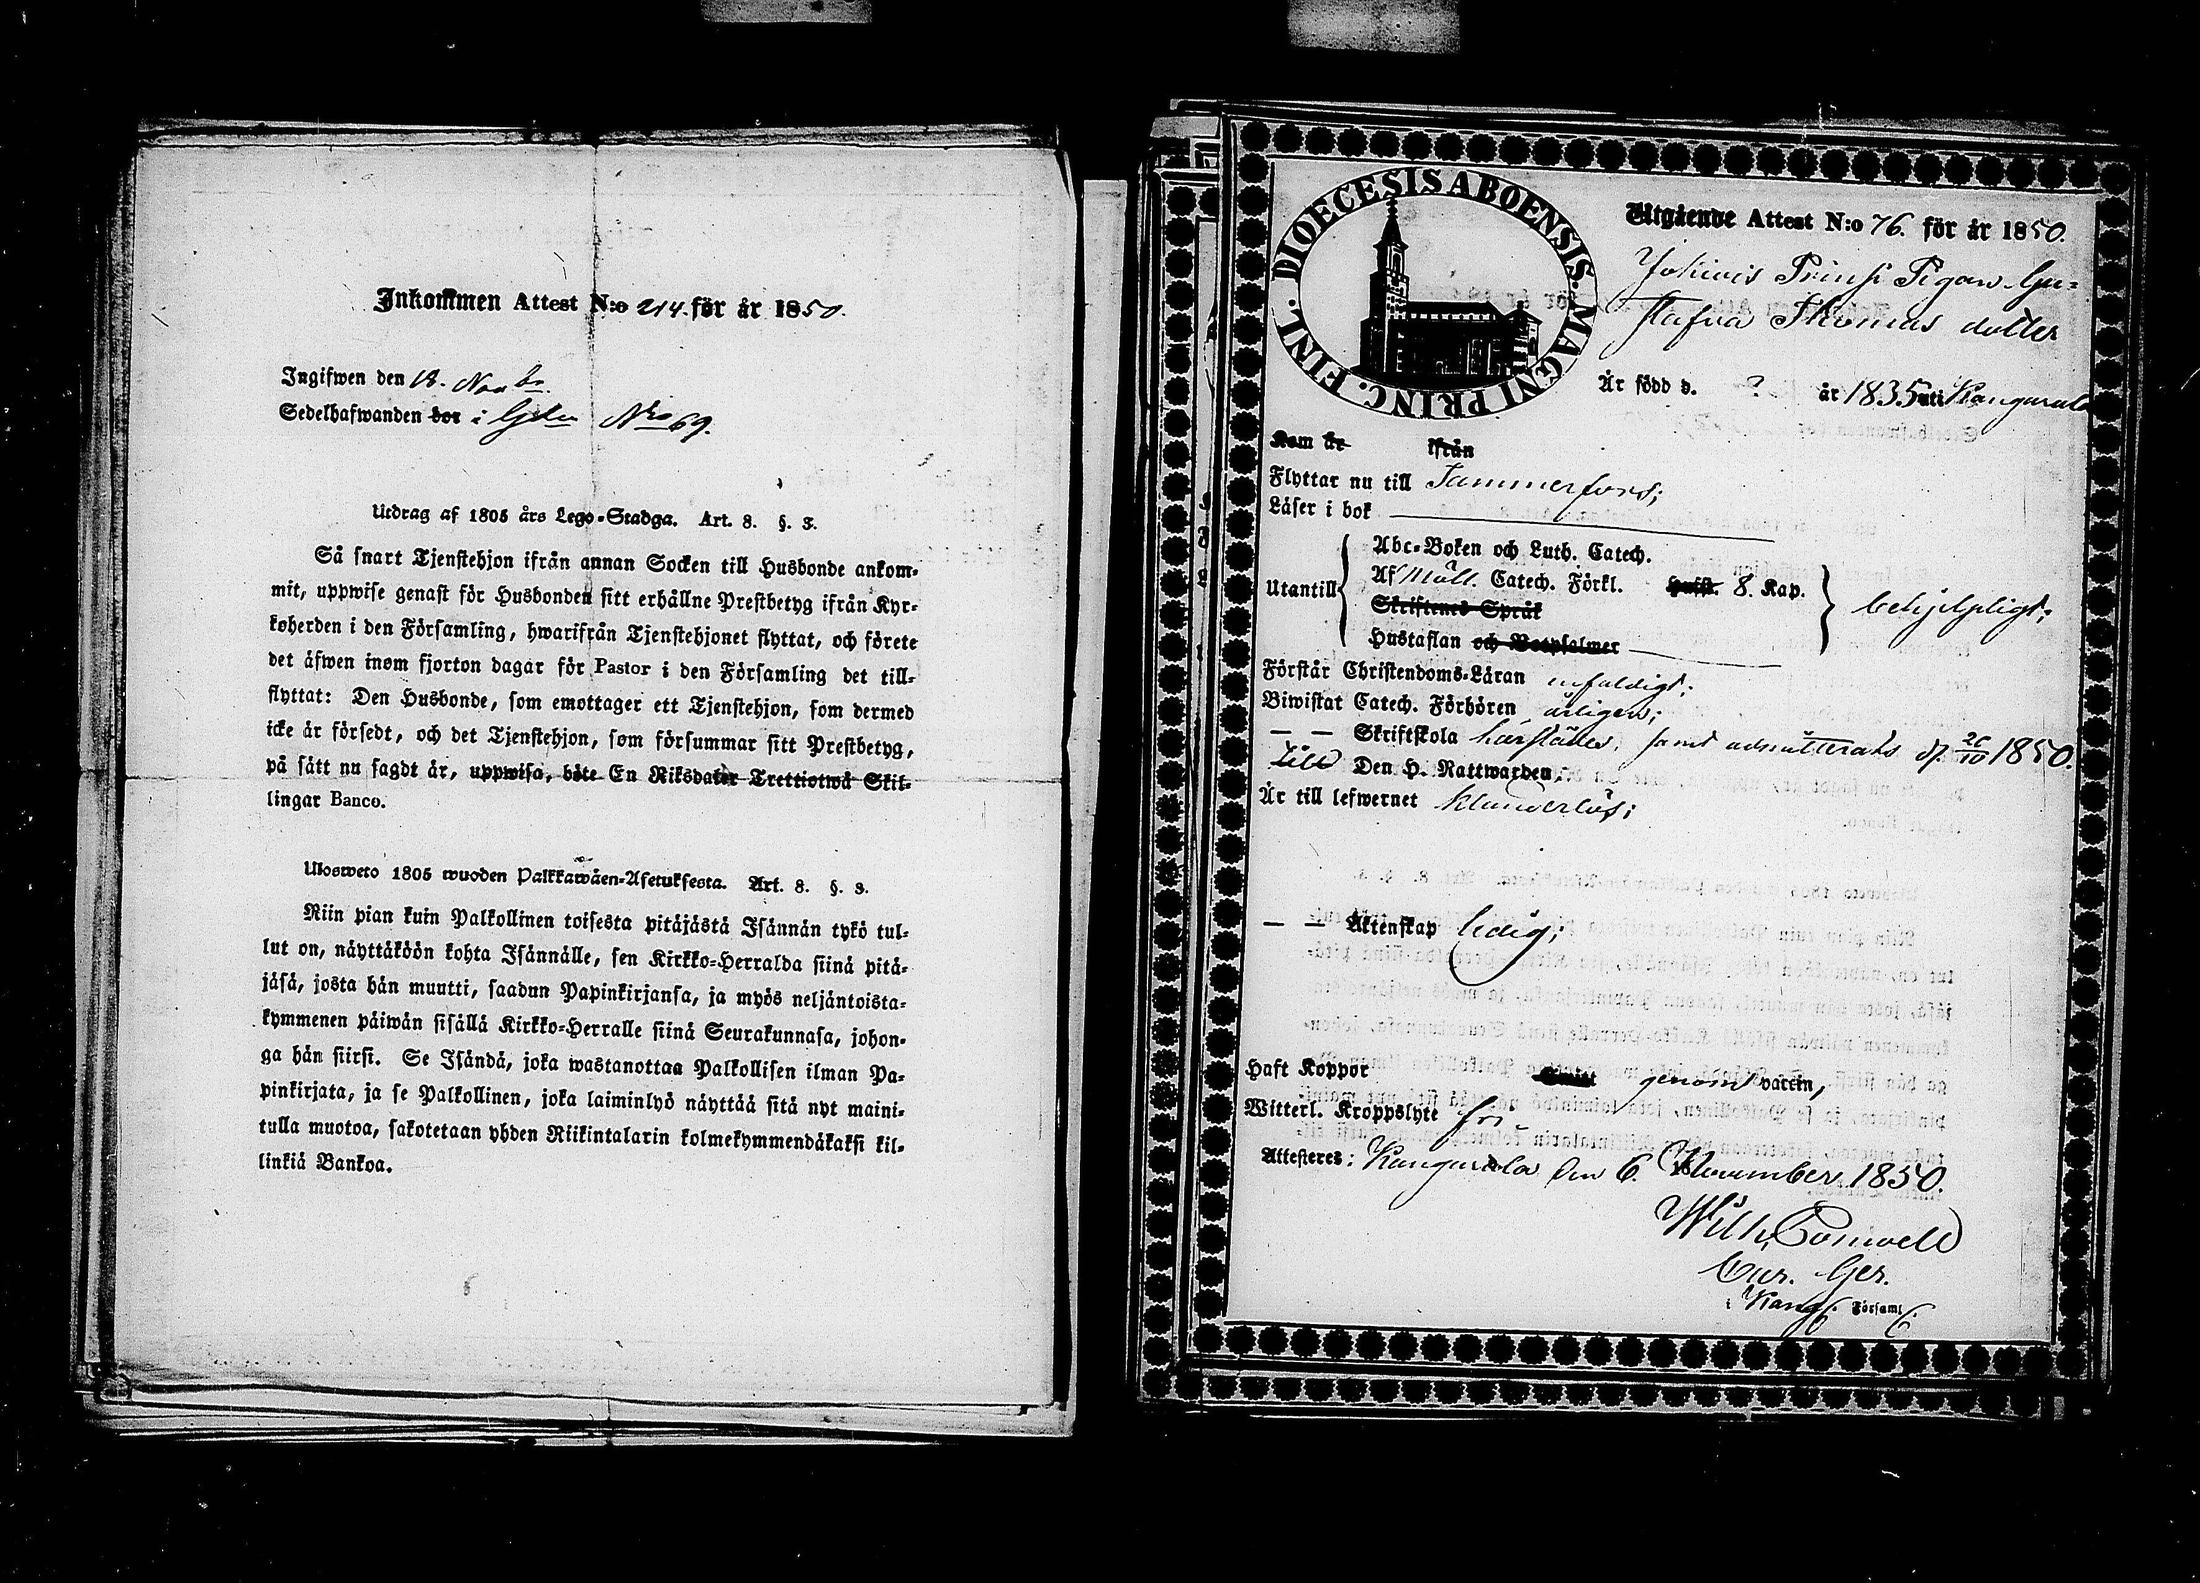 Inkommen Attest N:o 214. för år 1850.
Ingifwen den 18. Novbr
Sedelhafwanden bor i Gden Nro 69.
Utdrag af 1805 års Lego-Stadga. Art. 8. §. 3.
Så snart Tjenstehjon ifrån annan Socken till Husbonde ankom-
mit, uppwise genast för Husbonden sitt erhållne Prestbetyg ifrån Kyr-
koherden i den Församling, hwarifrån Tjenstehjonet flyttat, och förete
det äfwen inom fjorton dagar för Pastor i den Församling det till-
flyttat: Den Husbonde, som emottager ett Tjenstehjon, som dermed
icke är försedt, och det Tjenstehjon, som försummar sitt Prestbetyg,
på sätt nu sagdt är, uppwisa, böte En Riksdaler Trettiotwå Skil-
lingar Banco.
Ulosweto 1805 wuoden Palkkawäen-Asetuksesta. Art. 8. §. 3.
Niin pian kuin Palkollinen toisesta pitäjästä Isännän tykö tul-
lut on, näyttäköön kohta Isännälle, sen Kirkko-Herralda siinä pitä-
jäsä, josta hän muutti, saadun Papinkirjansa, ja myös neljäntoista-
kymmenen päiwän sisällä Kirkko-Herralle siinä Seurakunnasa, johon-
ga hän siirsi. Se Isändä, joka wastanottaa Palkollisen ilman Pa-
pinkirjata, ja se Palkollinen, joka laiminlyö näyttää sitä nyt maini-
tulla muotoa, sakotetaan yhden Riikintalarin kolmekymmendäkaksi kil-
linkiä Bankoa.
FINL. DIOECESIS ABOENSIS. MAGNI PRINC.
Utgående Attest N:o 76. för år 1850.
Jokinis Prinsi Pigan Gu-
stafva Thomas dotter
Är född d. ? år 1835 uti Kangasala
Kom år ifrån
Flyttar nu till Tammerfors;
Läser i bok
Utantill
Abc-Boken och Luth. Catech.
Af Möll. Catech. Förkl. 8. Kap. behjelpligt;
Skriftenes Språk
Hustaflan och Botpsalmer
Förstår Christendoms-Läran enfaldigt;
Biwistat Catech. Förhören årligen;
— — Skriftskola härstädes, samt admitterats d. 26/10 1850.
till Den H. Nattwarden
Är till lefwernet klanderlös;
— — Äktenskap ledig;
Haft Koppor genom vaccin,
Witterl. Kroppslyte fri
Attesteres: Kangasala den 6. November 1850.
Wilh.
Cur. Ger.
i Kang. Församl.